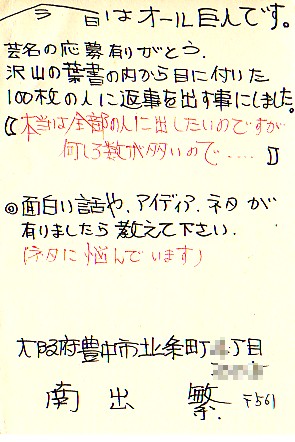 今日はオール巨人です。
芸名の応募有りがとう.
沢山の葉書の内から目に付いた
100枚の人に返事を出す事にしました。
〘本当は全部の人に出したいのですが
何しろ数が多いので....〙
◎面白い話や、アイディア、ネタが
有りましたら教えて下さい.
(ネタに悩んでいます)
大阪府豊中市北条町 丁目
南出 繁 〒561